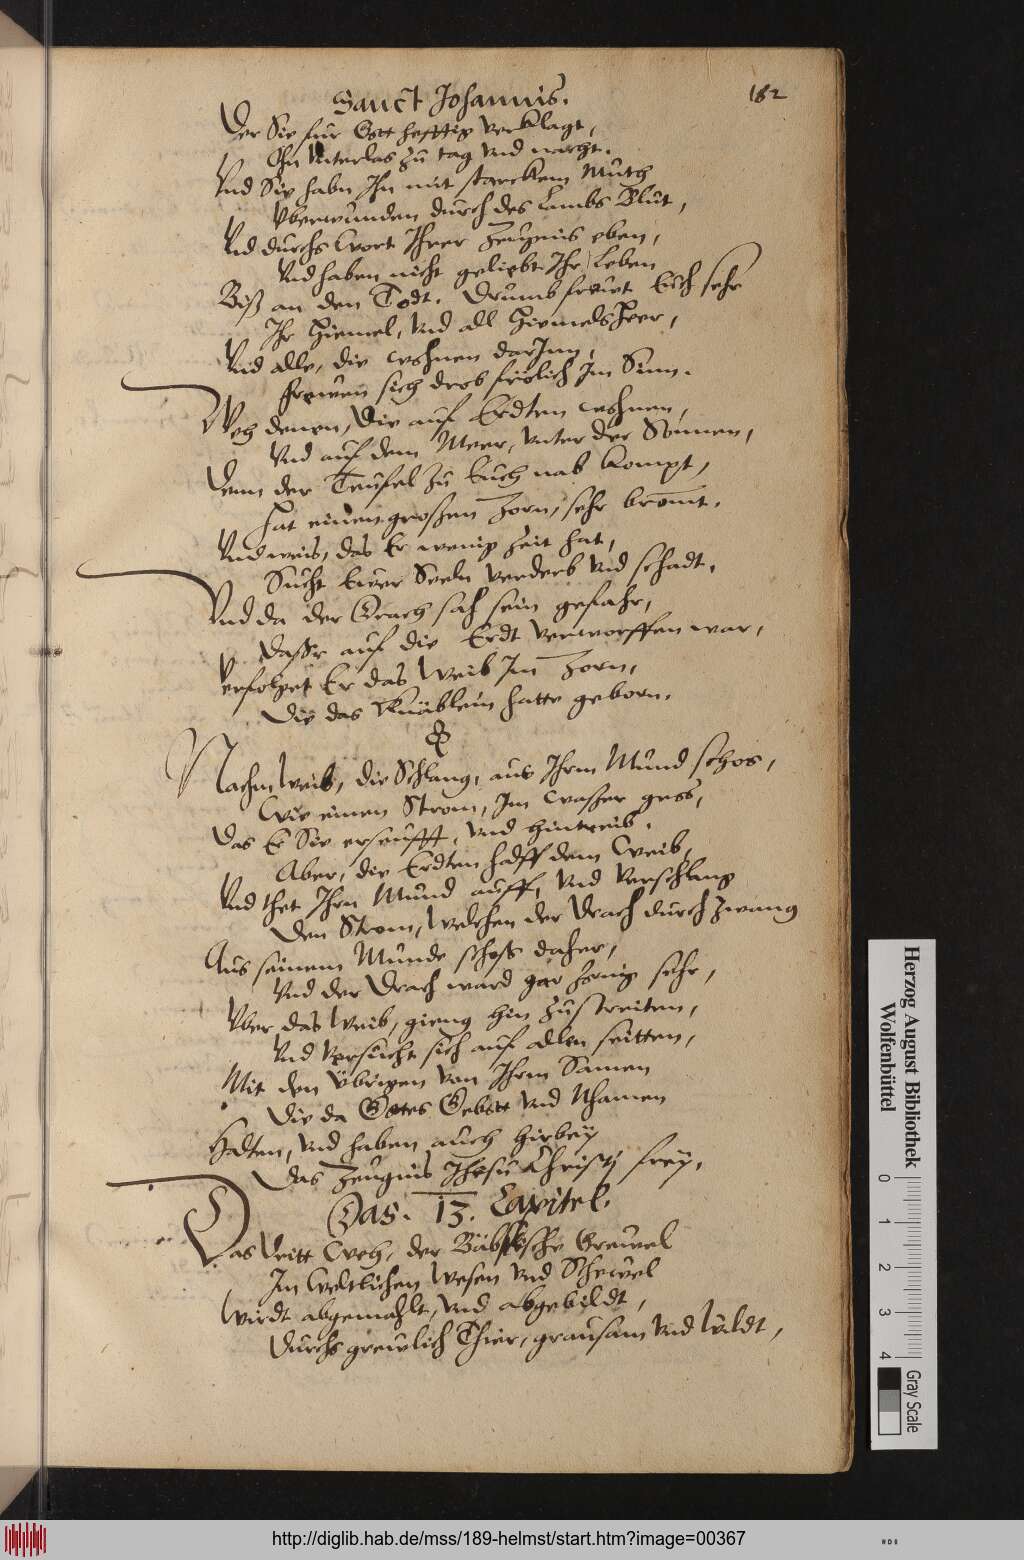 Sanct Johannis.
182
Der Sie fur Gott hefftig verklagt,
Ohn Unterlas zu tag vnd nacht.
Vnd Sie habn Ihn mit starckem Muth
Vberwunden durch des Lambs Blut,
Vnd durchs Wort Ihrer Zeugnis eben,
Vnd haben nicht geliebt Ihr Leben
Biß an den Todt. Drumb freuet Euch sehr
Ihr Himel, vnd all Himelsheer,
Vnd alle, die wohnen darJnn,
frewen sich drob frölich Jm Sinn.
Weh denen, Die auf Erdten wohnen,
Vnd auf dem Meer, vnter der Sonnen,
Denn der Teufel zu Euch nab kompt,
Hat einen großen Zorn, sehr bromt.
Vnd weis, das Er wenig Zeit hat,
Sucht Ewer Seeln verderb vnd schadt.
Vnd da der Drach sah sein gefahr,
Daß'r auf die Erdt verworffen war,
Verfolget Er das Weib Jm Zorn,
Die das Knäblein hatte geborn.
Nachm Weib, die Schlang, aus Ihrm Mund schos,
Wie einen Strom, Jm waßer gros,
Das Er Sie erseufft, vnd hintreib.
Aber, die Erdten halff dem Weib,
Vnd thet Ihrn Mund auff, vnd verschlang
Den Strom, Welchen der Drach durch Zwang
Aus seinem Munde schos daher,
Vnd der Drach ward gar zornig sehr,
Vber das Weib, gieng hin zustreiten,
Vnd versucht sich auf allen seitten,
Mit den Vbrigen von Ihrm Samen
Die da Gottes Gebott vnd Nhamen
Halten, vnd haben auch hirbey
Das Zeugnis Ihesu Christj frey.
Das. 13. Capitel.
Das Dritt Weh, der Bäbstische Grewel
Jm Weltlichen Wesen vnd Schewel
Wirdt abgemahlt, vnd abgebildt,
Durchs grewlich Thier, grausam vnd Wildt,
Herzog August Bibliothek
Wolfenbüttel
0 1 2 3 4
Gray Scale
http://diglib.hab.de/mss/189-helmst/start.htm?image=00367